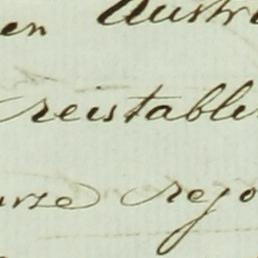 en Austr
reistable
urse rejo